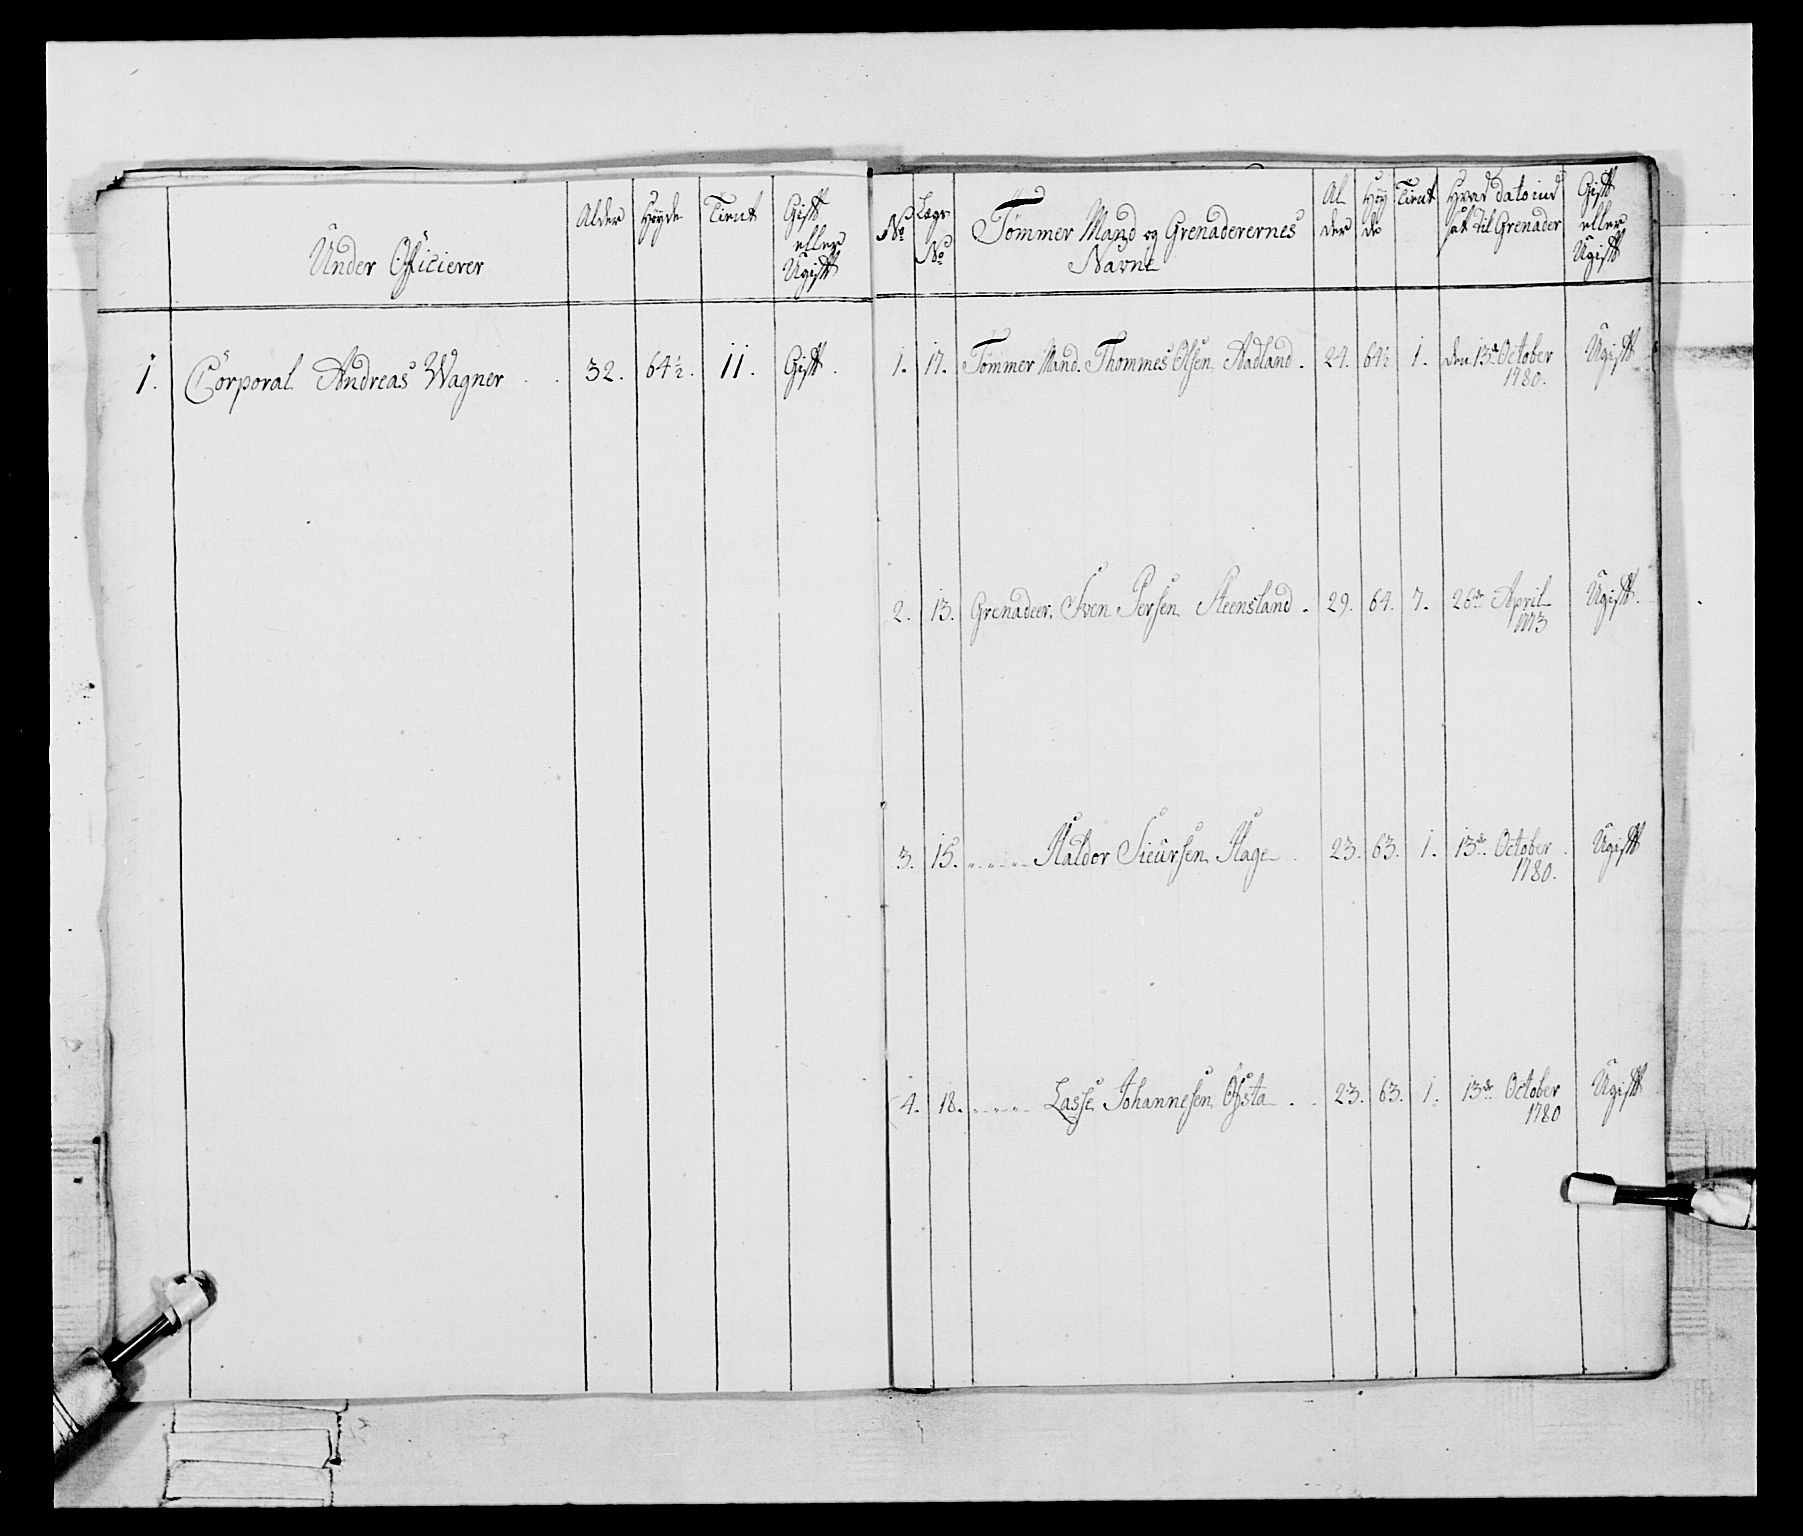 Under Officierer
Alder
Høyde
Tient
Gift
eller
Ugift
1. Corporal Andreas Wagner 32. 64½. 11. Gift.
No
Lægs
No
Tømmer Mand og Grenaderernes
Navne
Al
der
Høy
de
Tient
Hvad dato ind
sat til Grenader
Gift
eller
Ugift
1. 17. Tømmer Mand. Thommes Olsen Aadland. 24. 64½ 1. den 13de October
1780.
Ugift
2. 13. Grenadeer. Sven Persen Steensland. 29. 64. 7. 26de April
1773
Ugift.
3. 15. Haldor Sieursen Hage 23. 63. 1. 13de October
1780.
Ugift
4. 18. Lasse Johannesen Øfsta 23. 63. 1. 13de October
1780
Ugift